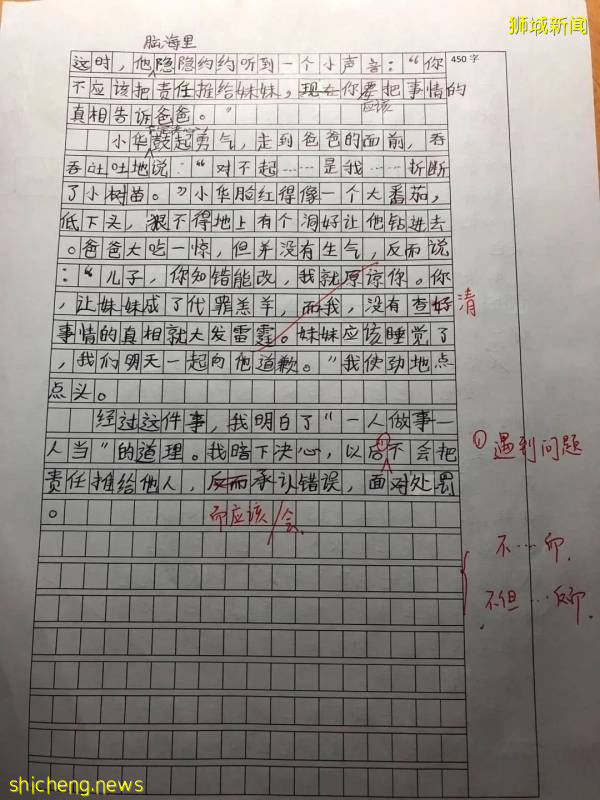 狮城新闻
脑海里
450字
这时，他隐隐约约听到一个小声音：“你
不应该把责任推给妹妹，现在你要把事情的
应该
真相告诉爸爸。”
小华鼓起勇气，走到爸爸的面前，吞
吞吐吐地说：“对不起……是我……折断
了小树苗。”小华脸红得像一个大番茄，
低下头，狠不得地上有个洞好让他钻进去
。爸爸大吃一惊，但并没有生气，反而说
：“儿子，你知错能改，我就原谅你。你
，让妹妹成了代罪羔羊，而我，没有查好 清
事情的真相就大发雷霆。妹妹应该睡觉了
，我们明天一起向他道歉。”我使劲地点
点头。
经过这件事，我明白了“一人做事一
人当”的道理。我暗下决心，以后①不会把
① 遇到问题
责任推给他人，反而承认错误，面对处罚
。
而应该/会
不…
不但…
shicheng.news